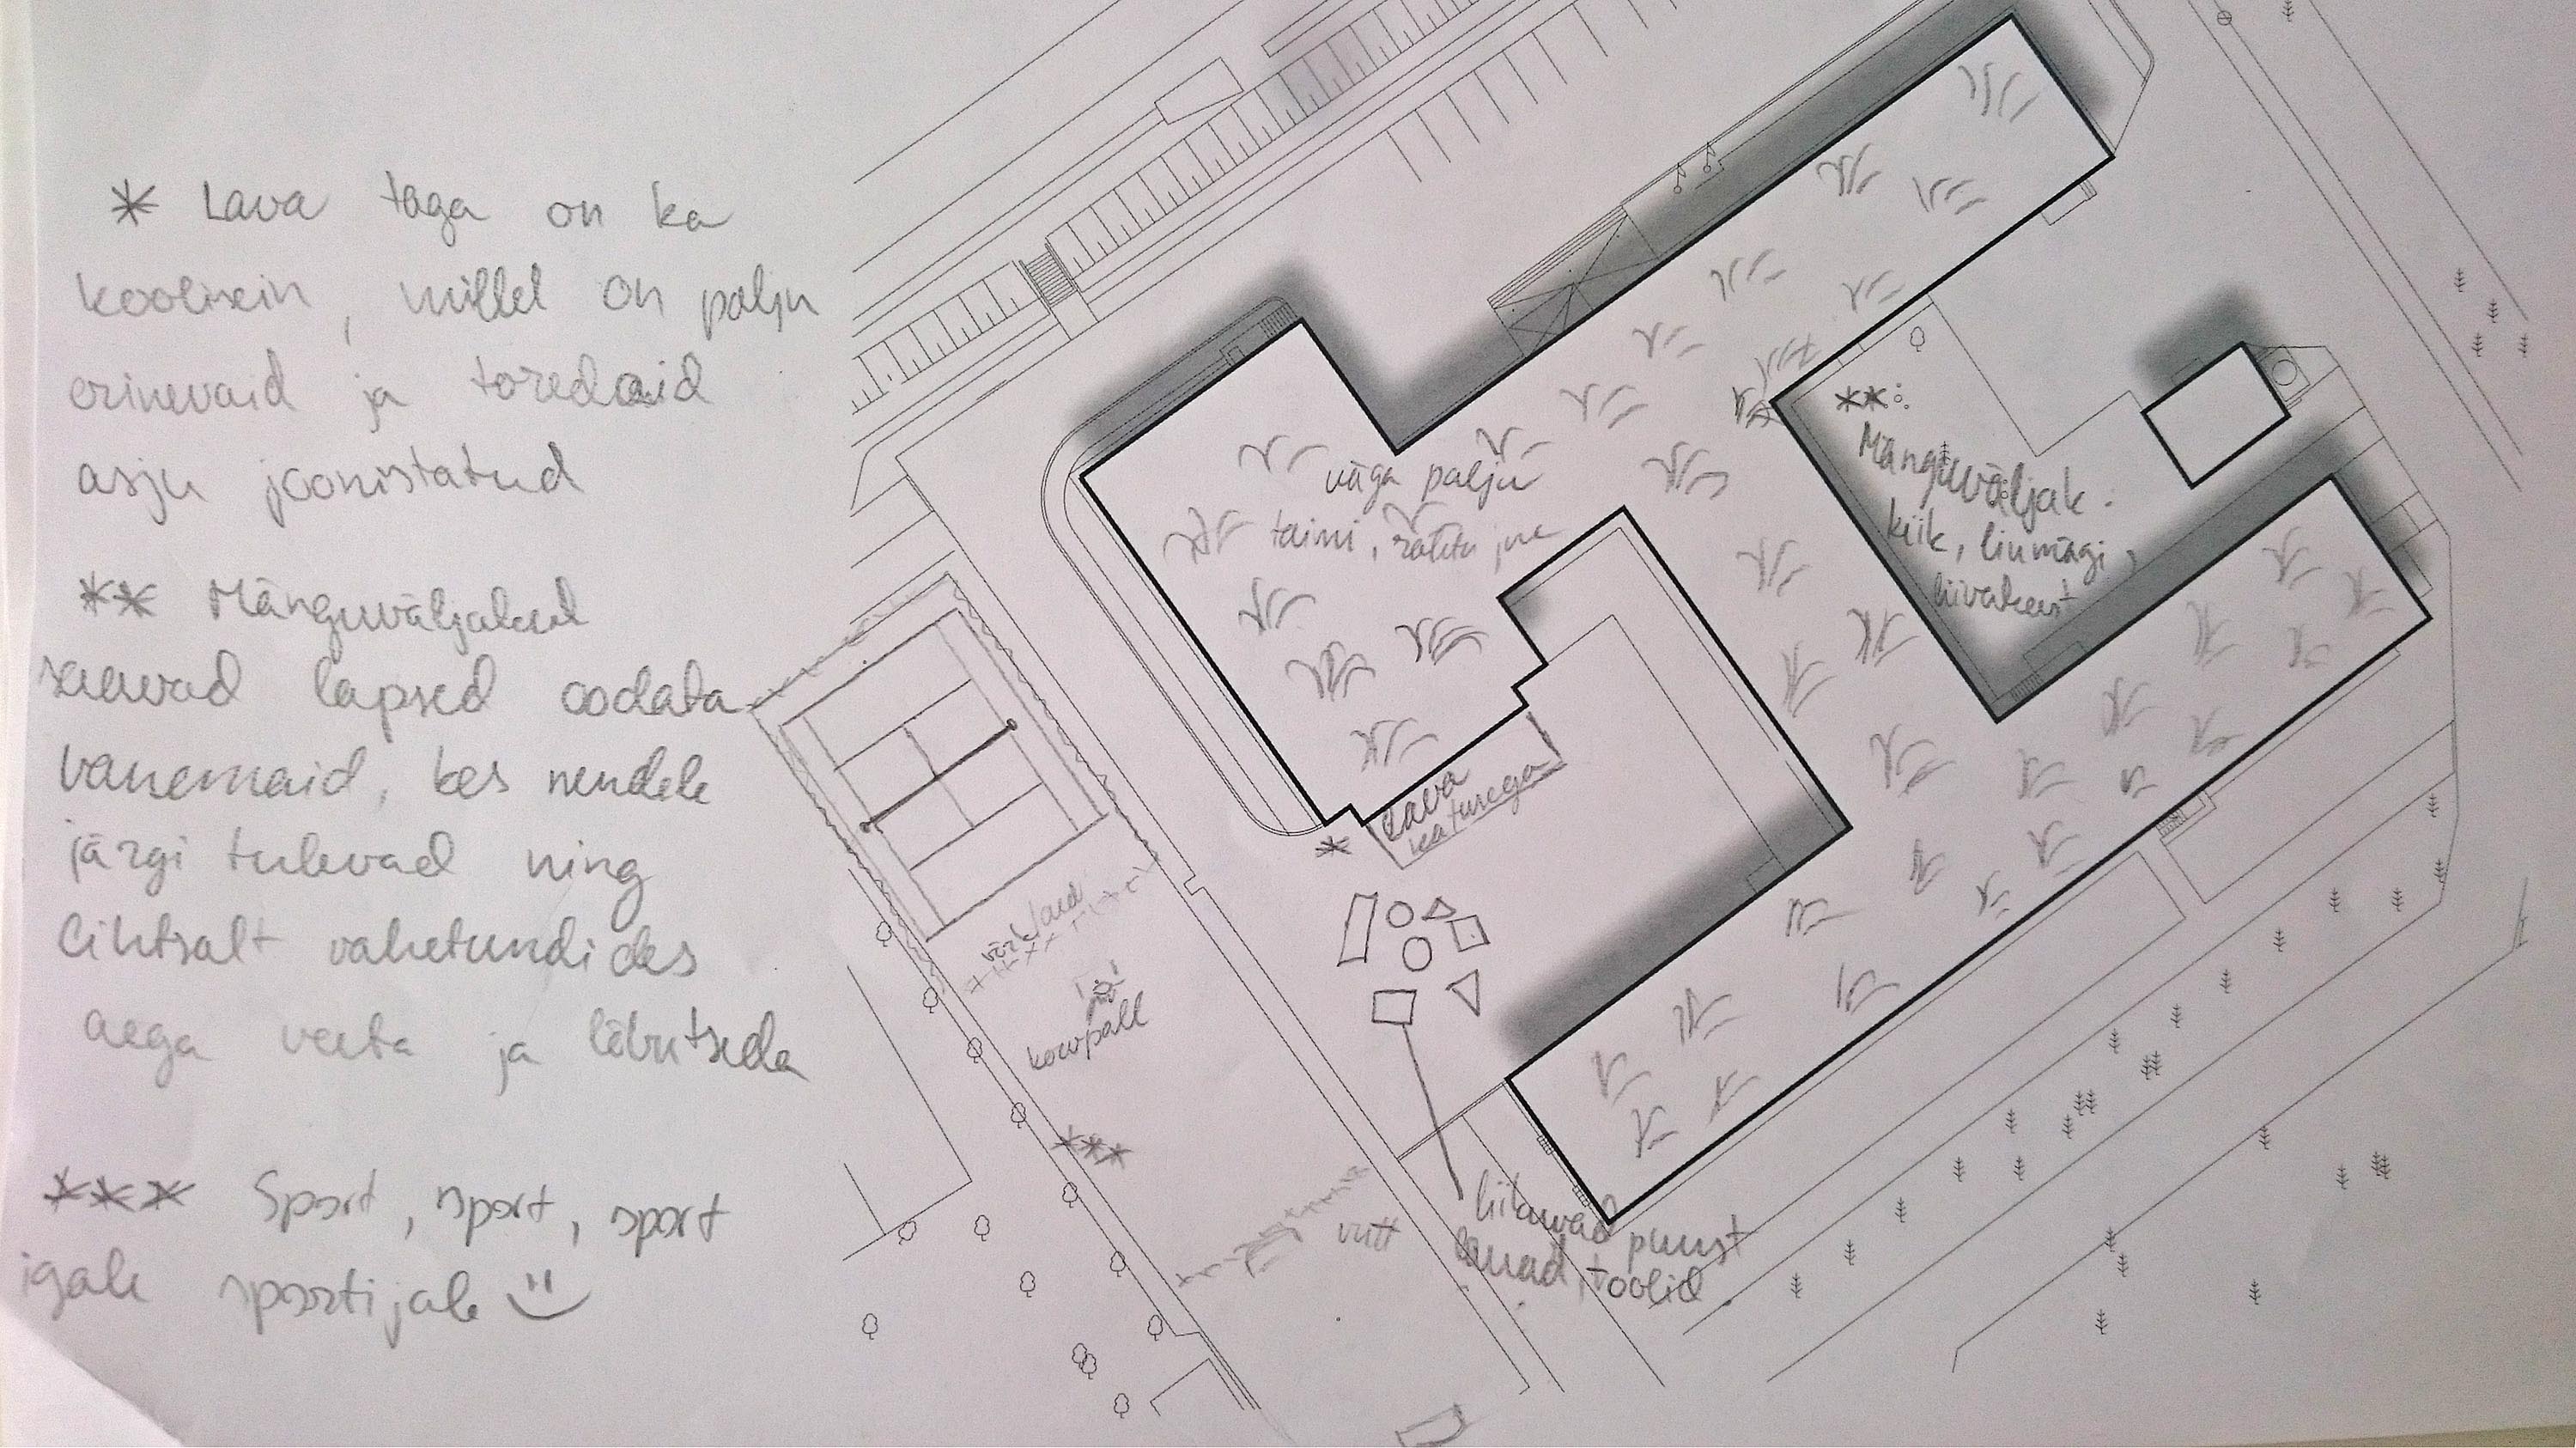 * Lava taga on ka
koolisein, millel on palju
erinevaid ja toredaid
asju joonistatud
** Mänguväljakud
saavad lapsed oodata
vanemaid, kes nendele
järgi tulevad ning
lihtsalt vahetundides
aega veeta ja lõbutseda
*** Sport, sport, sport
igale sportijale
väga palju
taimi, rohtu jne
**:
Mänguväljak:
kiik, liumägi,
liivakast
Lava
katusega
*
võrkaed
korvpall
***
vutt
liikuvad puust
lauad, toolid